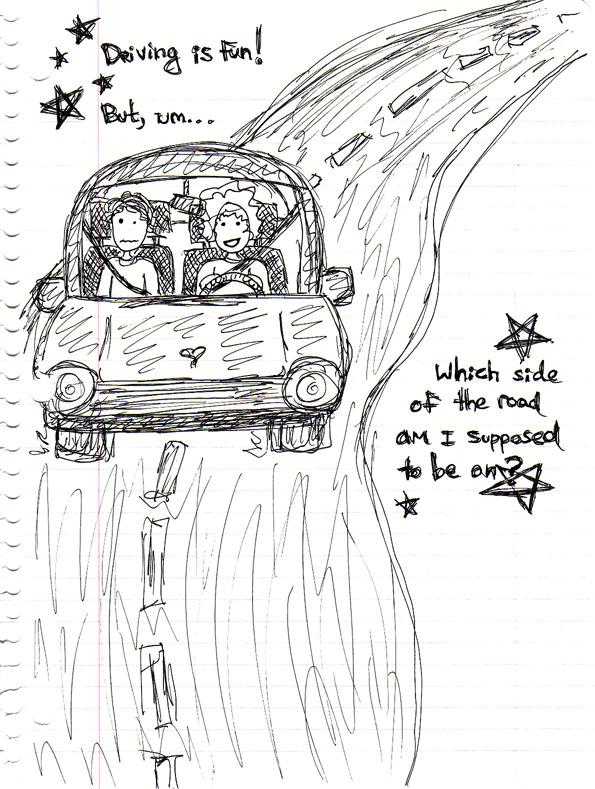 Driving is fun!
But, um...
Which side
of the road
am I supposed
to be on?